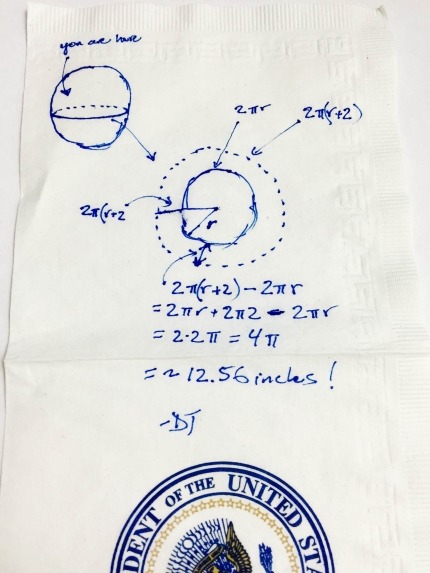 you are here
2πr
2π(r+2)
2π(r+2
r
2π(r+2) - 2πr
= 2πr + 2π2 - 2πr
= 2·2π = 4π
= ~ 12.56 inches !
-DJ
DENT OF THE UNITED STA